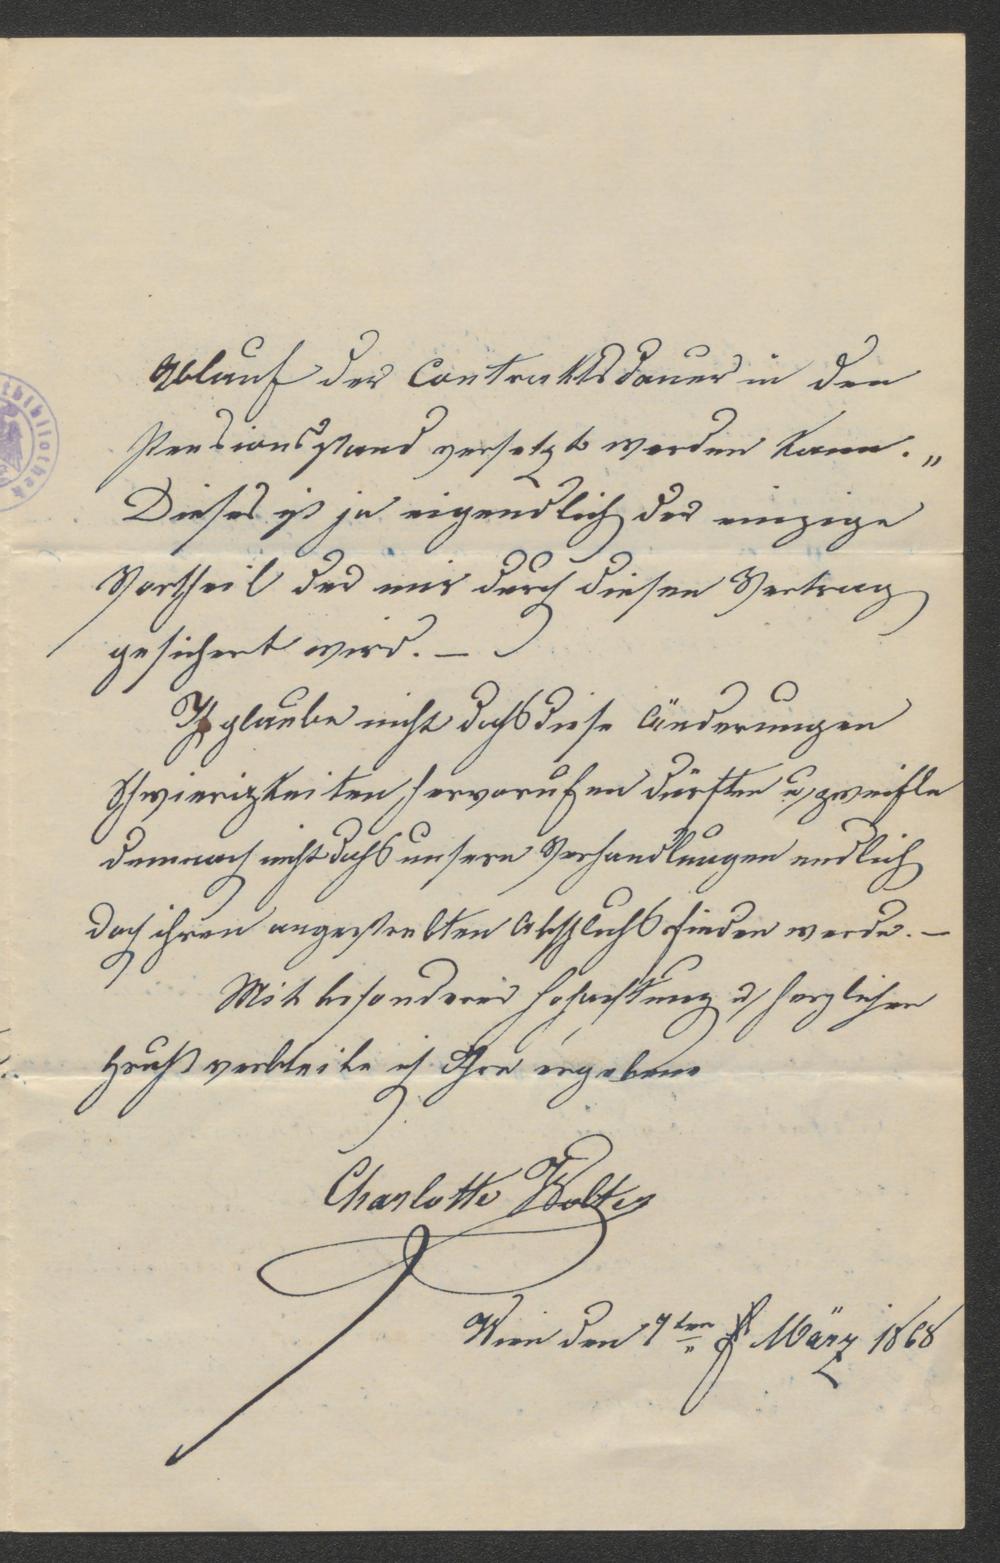 Ablauf der Contraktsdauer in den
Pensionsstand versetzt werden kann."
Dieses ist ja eigendlich der einzige
Vortheil der mir durch diesen Vertrag
gesichert wird. –
Ich glaube nicht daß diese Änderungen
Schwierigkeiten hervorrufen dürften u. zweifle
demnach nicht daß unsere Verhandlungen endlich
doch ihren angestrebten Abschluß finden werde. –
Mit besonderer Hochachtung u. herzlichen
Gruß verbleibe ich Ihre ergebene
Charlotte Wolter
Wien den 7ten März 1868
thek